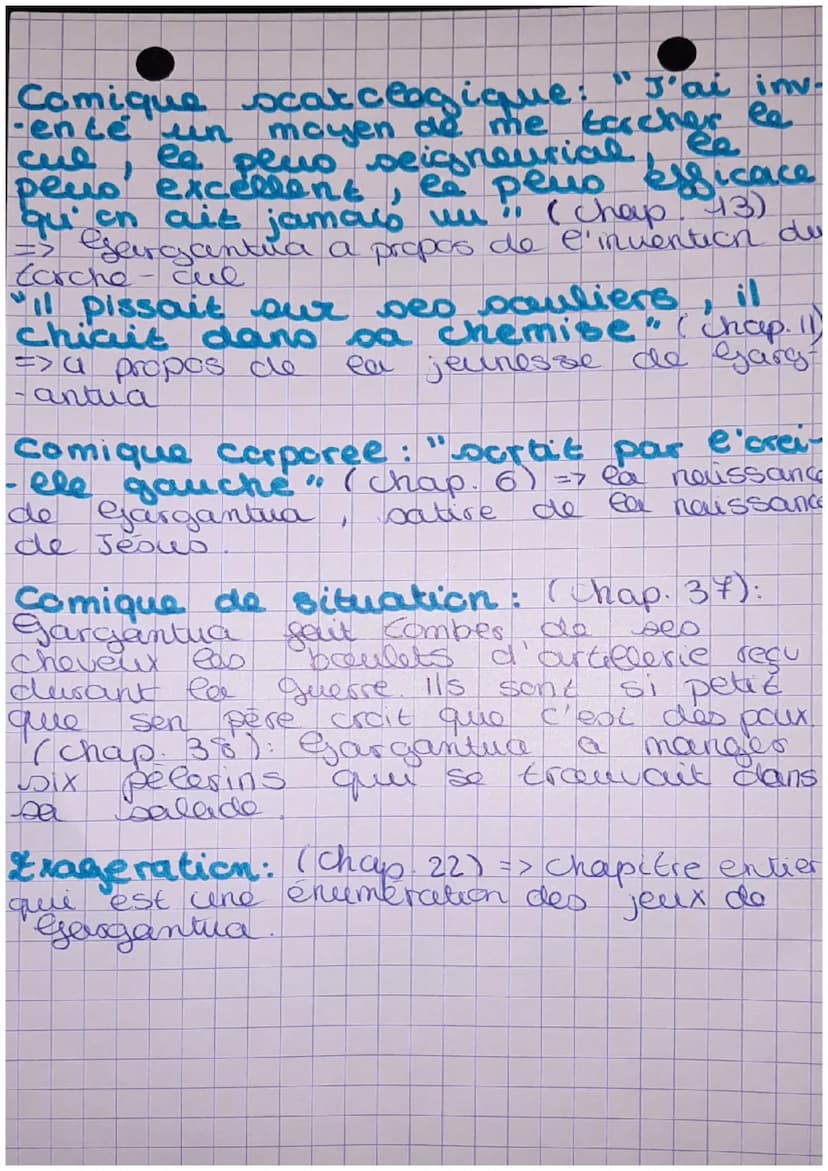 Comique scatologique : "J'ai inv-
-enté un moyen de me torcher le
cul, le plus seigneurial, le
plus excellent, le plus efficace
qu'on ait jamais vu" (chap. 13)
=> Gargantua a propos de l'invention du
torche-cul
"il pissait sur ses souliers, il
chiait dans sa chemise" (chap. 11)
=> a propos de la jeunesse de Garg-
-antua
Comique corporel : "sortit par l'orei-
-lle gauche" (chap. 6) => la naissance
de Gargantua, satire de la naissance
de Jésus.
Comique de situation : (chap. 37):
Gargantua fait tomber de ses
cheveux les boulets d'artillerie reçu
durant la guerre. Ils sont si petit
que son père croit que c'est des poux.
(chap. 38): Gargantua a manger
six pélerins qui se trouvait dans
sa salade.
Exageration: (chap. 22) => chapitre entier
qui est une énumération des jeux de
Gargantua.